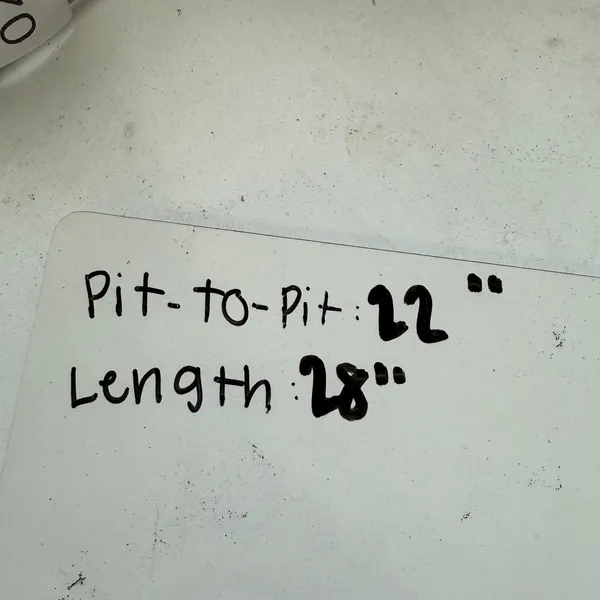 Pit-to-Pit: 22"
Length: 28"